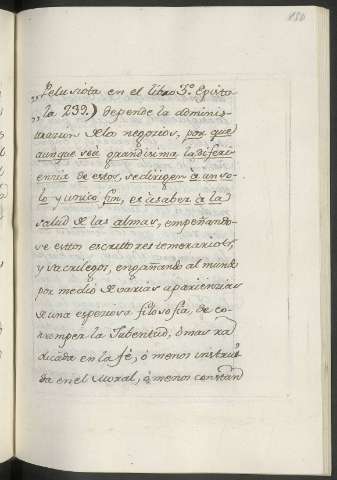 180
„Pelusiota en el libro 5.º Episto
„la 239.) depende la adminis-
tracion de los negocios, por que
aunque sea grandisima la difer
encia de estos, se dirigen à un so-
lo y unico fin, es à saber à la
salud de las almas, empeñando-
se estos escritores temerarios,
y sacrilegos, engañando al mundo
por medio de varias apariencias
de una especiosa filosofia, de co-
rromper la Jubentud, ò mas ra
dicada en la fé, ó menos instrui
da en el Moral, ó menos constan